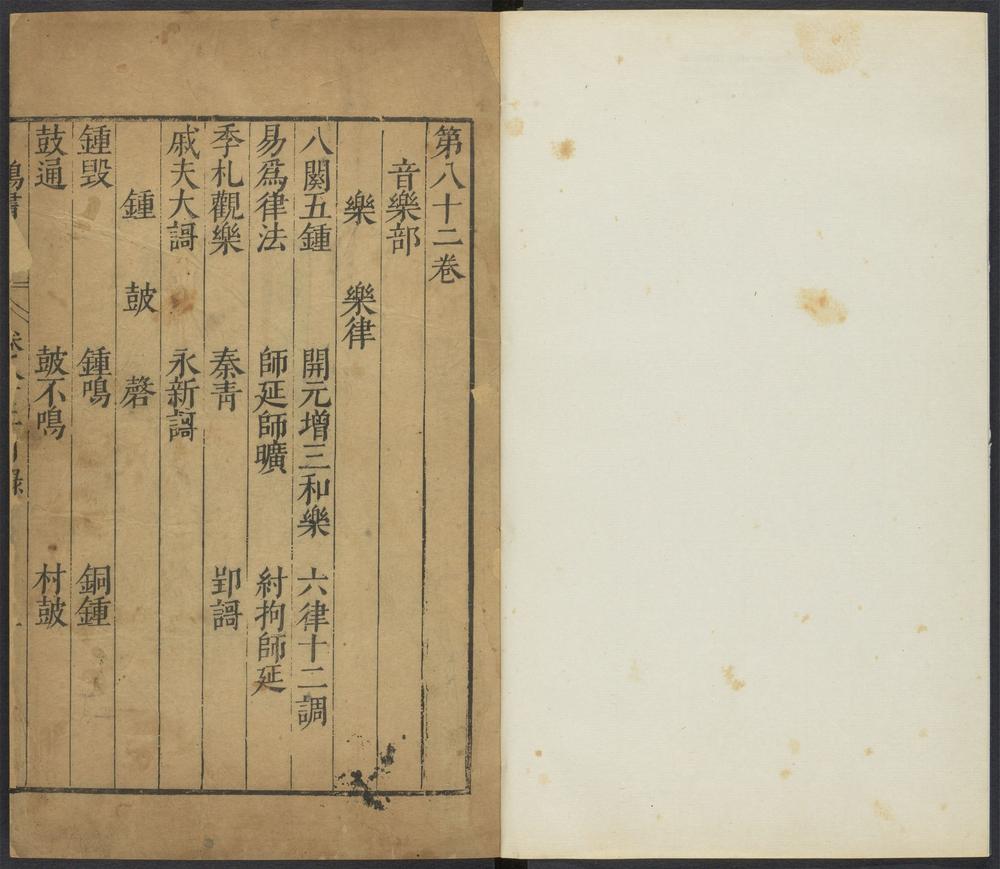 第八十二卷
音樂部
樂 樂律
八闋五鍾 開元增三和樂 六律十二調
易爲律法 師延師曠 紂拘師延
季札觀樂 秦青 郢謌
戚夫大謌 永新謌
鍾 鼓 磬
鍾毀 鍾鳴 銅鍾
鼓通 鼓不鳴 村鼓